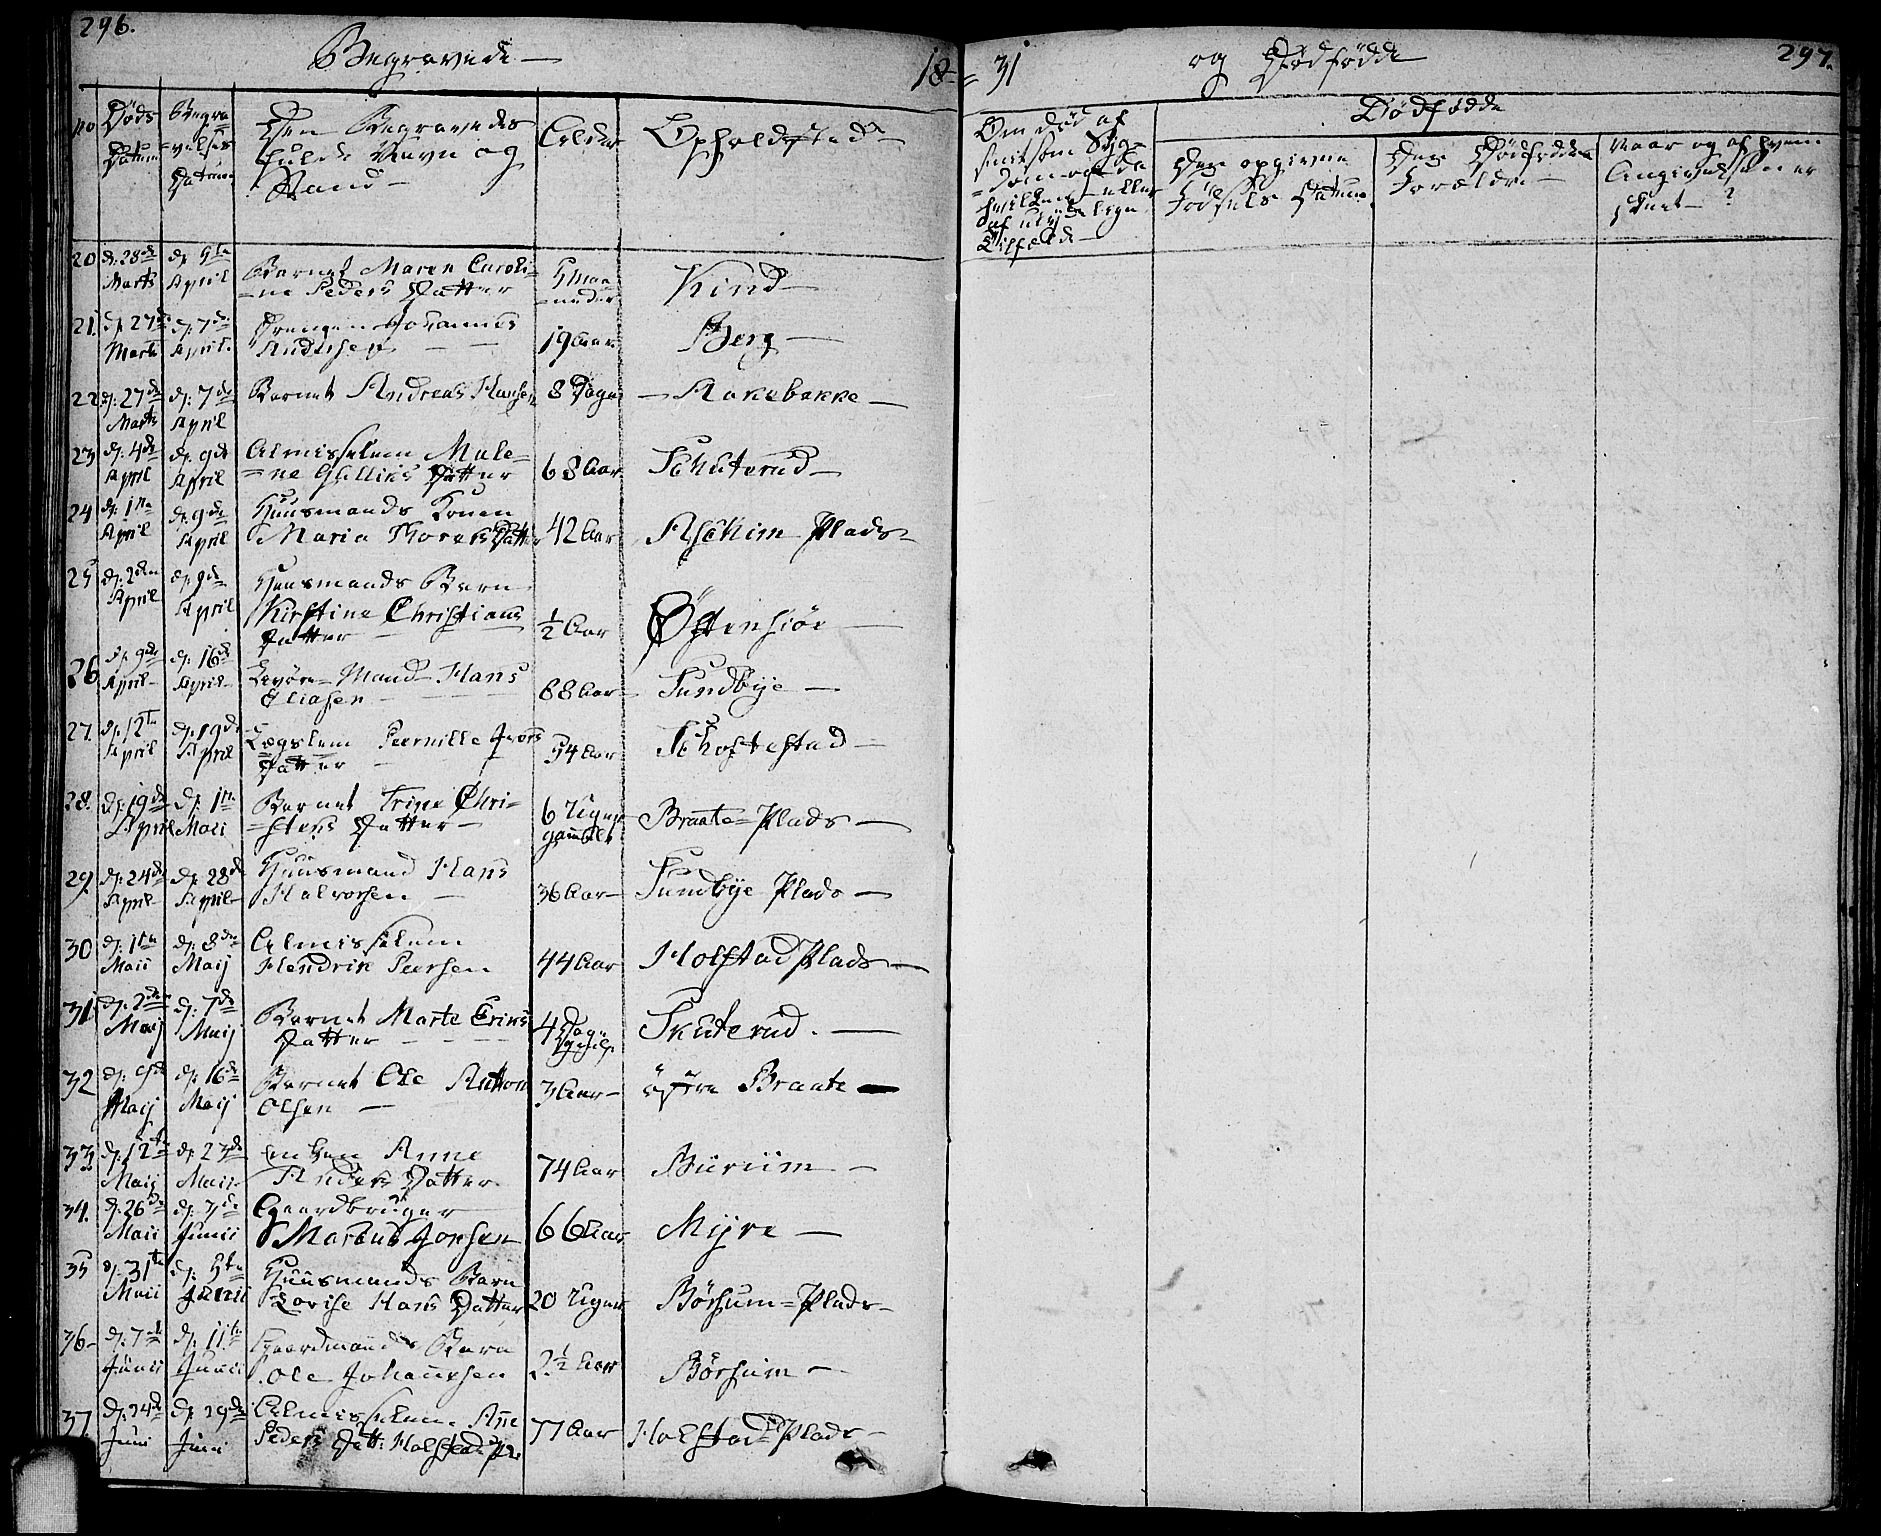 296.
Begravede
18
No
Døds Datum
Begravelses Datum
Den Begravedes fulde Navn og Stand
Alder
Opholdsted
20 d. 28de Marts d. 5te April Barnet Maren Caroli=
=ne Peders Datter 5 Maaneder Kind
21. d. 27de Marts d. 7de April Drengen Johannes
Andersen 19 Aar Berg
22 d. 27de Marts d. 7de April Barnet Andreas Hansen 8 Dage Aakebakke
23 d. 4de April d. 9de April Almisselem Male=
=ne Gullics Datter 68 Aar Schuterud
24 d. 1te April d. 9de April Huusmands Konen
Maria Thores Datter 42 Aar Aschim Plads
25 d. 2den April d. 9de April Huusmands Barn
Kirstine Christians
Datter ½ Aar Østensiøe
26 d. 9de April d. 16de April Mand Hans
Eliasen 88 Aar Sundbye
27. d. 12te April d. 19de April Lægslem Pernille
Datter 54 Aar Schoftestad
28. d. 19de April d. 1te Maii Barnet Trine Chri=
=stens Datter 6 Uger gammelt Braate=Plads
29. d. 24de April d. 28de April Huusmand Hans
Halvorsen 36 Aar Sundbye Plads
30 d. 1te Maii d. 8de Maij Almisselem
Hendrik Peersen 44 Aar Holstad Plads
31 d. 2den Maij d. 7de Maij Barnet Marte Eriks
Datter 4 Dage Skuterud.
32 d. 9de Maij d. 16de Maij Barnet Ole Anthon
Olsen 3 Aar østre Braate
33 d. 12te Maij d. 23de Maii Enken Anne
Anders Datter 74 Aar Buruum
34. d. 26de Maii d. 7de Junii Gaardbruger
Marcus Jonsen 66 Aar Myre
35 d. 31te Maii d. 5te Junii Huusmands Barn
Lovise Hans Datter 20 Uger Børsum=Plads
36 d. 7de Junii d. 11te Junii Gaardmands Barn
Ole Johannsen 2½ Aar Børsum
37. d. 24de Juni d. 29de Juni Almisselem Ane
Peders Datt: Holstad Pl: 77 Aar Holstad=Plads
31
og Dødfødde
297.
Om død af
smitsom Syg=
=dom og da
hvilken eller
af ulykkelige
Tilfælde
Dødfødde
Den opgivne
Fødsels Datum
Den Dødfødtes
Forældre
Naar og af hvem
Angivelsen er
skeet ?